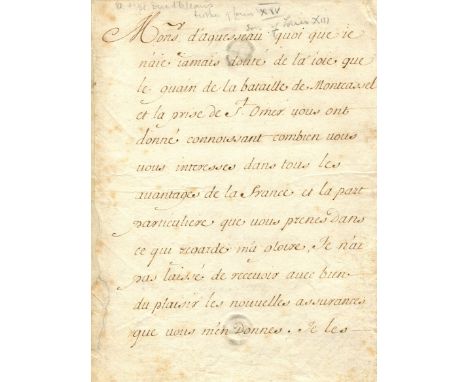 brother of Louis XIV
son of Louis XIII
Mons. d'aguesseau quoi que ie
n'aie iamais douté de la ioie que
le guain de la bataille de Montcassel
et la prise de St. Omer vous ont
donné connoissant combien vous
vous interesses dans tous les
auantages de la France et la part
particuliere que vous prenes dans
ce qui regarde ma gloire, Je n'ai
pas laissé de receuoir auec bien
du plaisir les nouvelles assurances
que vous m'en donnes. Je les